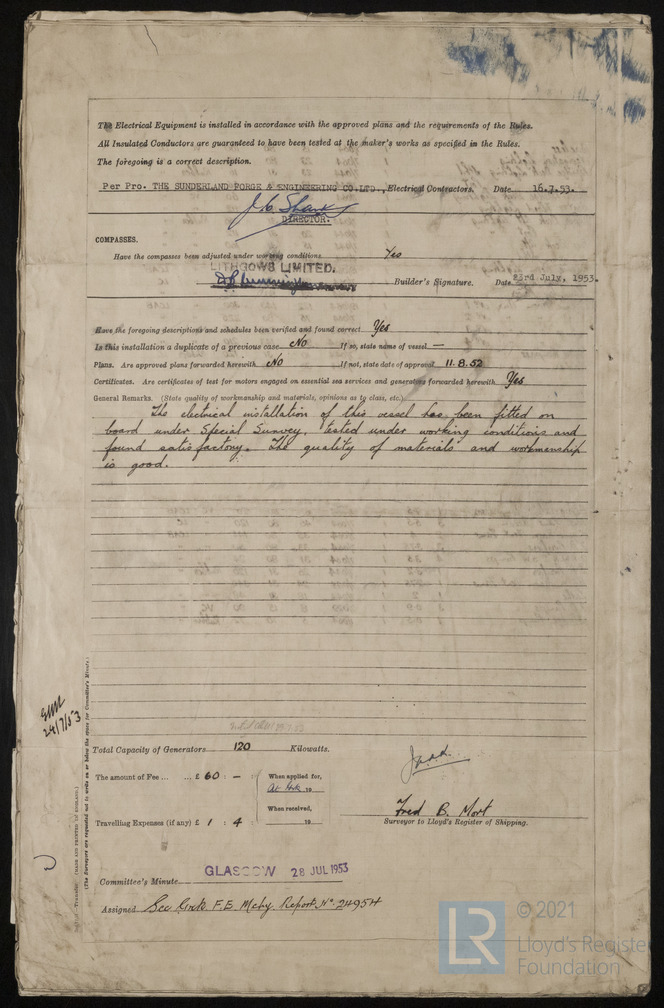 The Electrical Equipment is installed in accordance with the approved plans and the requirements of the Rules.
All Insulated Conductors are guaranteed to have been tested at the maker's works as specified in the Rules.
The foregoing is a correct description.
Per Pro. THE SUNDERLAND FORGE & ENGINEERING CO.LTD., Electrical Contractors. Date 16.7.53.
DIRECTOR.
COMPASSES.
Have the compasses been adjusted under working conditions Yes
LITHGOWS LIMITED.
Builder's Signature. Date 23rd July, 1953.
Have the foregoing descriptions and schedules been verified and found correct Yes
Is this installation a duplicate of a previous case No If so, state name of vessel —
Plans. Are approved plans forwarded herewith No If not, state date of approval 11.8.52
Certificates. Are certificates of test for motors engaged on essential sea services and generators forwarded herewith Yes
General Remarks. (State quality of workmanship and materials, opinions as to class, etc.)
The electrical installation of this vessel has been fitted on
board under Special Survey, tested under working conditions and
found satisfactory. The quality of materials and workmanship
is good.
24/7/53
(The Surveyors are requested not to write on or below the space for Committee's Minute.)
(MADE AND PRINTED IN ENGLAND.)
Total Capacity of Generators 120 Kilowatts.
The amount of Fee ... ... £ 60 : — When applied for,
19
When received,
Travelling Expenses (if any) £ 1 : 4 19
Fred B. Mort
Surveyor to Lloyd's Register of Shipping.
Committee's Minute GLASGOW 28 JUL 1953
Assigned See Grk F.E. Mchy. Report No. 24954
LR
© 2021
Lloyd's Register
Foundation